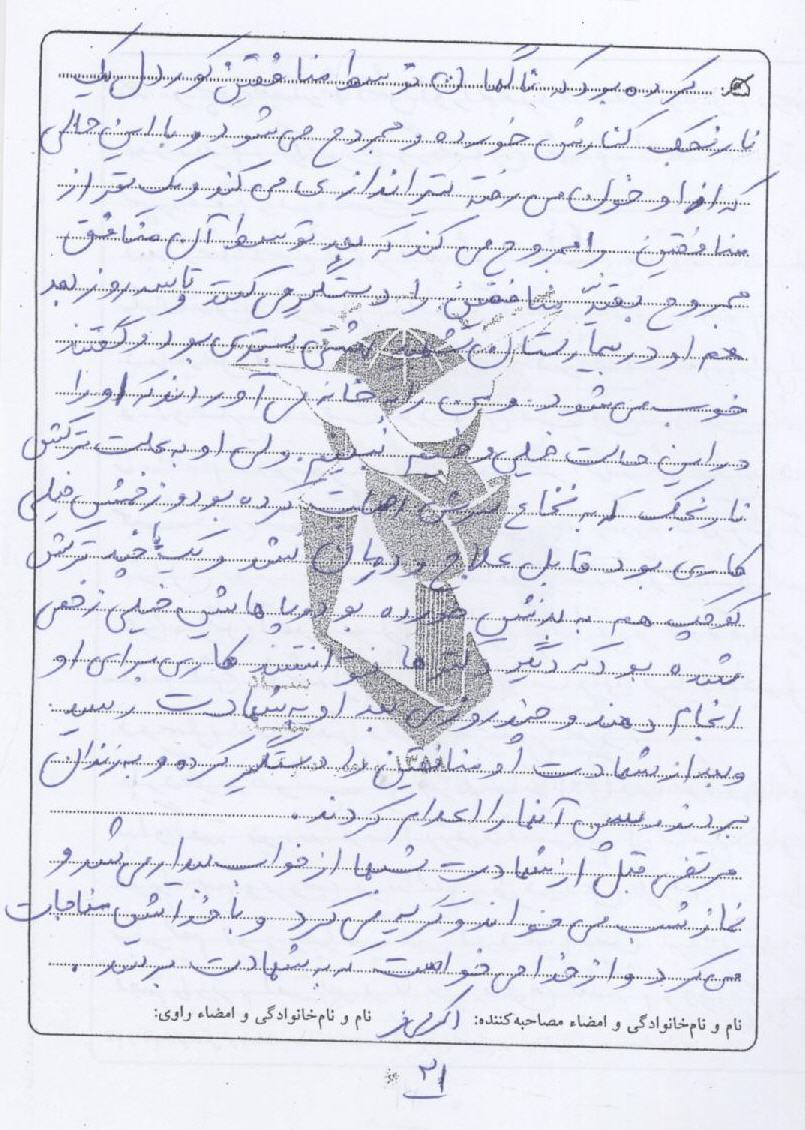 کرده بود که ناگهان توسط منافقین کوردل یک
نارنجک کنارش خورده و مجروح می شود و با این حالی
که از او خون می رفته تیراندازی می کند و یک نفر از
منافقین را مجروح می کند که بعد توسط آن منافق
مجروح بقیه منافقین را دستگیر می کنند و تا سه روز بعد
هم او در بیمارستان شهید بهشتی بستری بود و گفتند
خوب می شود. و من را به خانه می آوردند که او را
در این حالت خیلی وخیم نبینم. ولی او به علت ترکش
نارنجک که به نخاع سرش اصابت کرده بود و زخمش خیلی
کاری بود قابل علاج و درمان نشد و یک پارچه ترکش
کوچک هم به بدنش خورده بود و پاهایش خیلی زخمی
شده بود که دیگر دکترها نتوانستند کاری برای او
انجام دهند و چند روزی بعد او به شهادت رسید
و بعد از شهادت او منافقین را دستگیر کرده و به زندان
بردند و سپس آنها را اعدام کردند.
مرتضی قبل از شهادت شبها از خواب بیدار می شد و
نماز شب می خواند و گریه می کرد و با خدایش مناجات
می کرد و از خدا می خواست که به شهادت برسد.
نام و نام‌خانوادگی و امضاء مصاحبه‌کننده: نام و نام‌خانوادگی و امضاء راوی:
۲۱